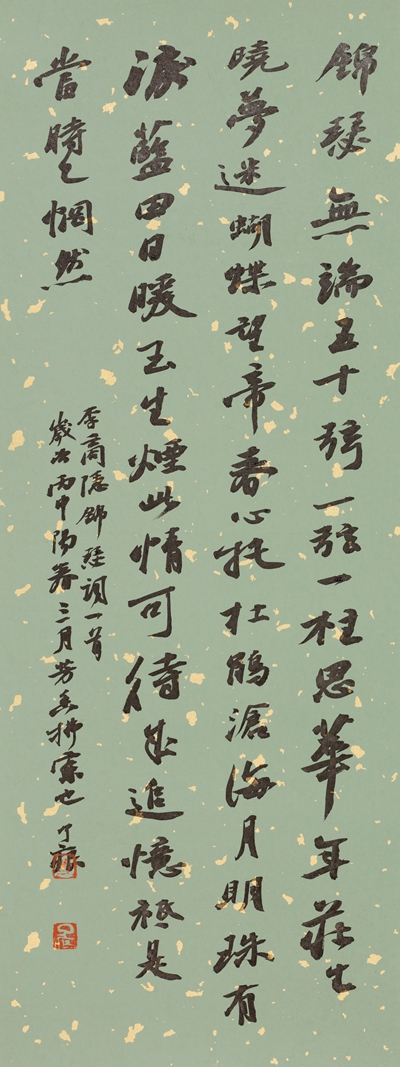 錦瑟無端五十弦一弦一柱思華年莊生
曉夢迷蝴蝶望帝春心托杜鵑滄海月明珠有
淚藍田日暖玉生煙此情可待成追憶祗是
當時已惘然
李商隱錦瑟詞一首
歲次丙申陽春三月芳也